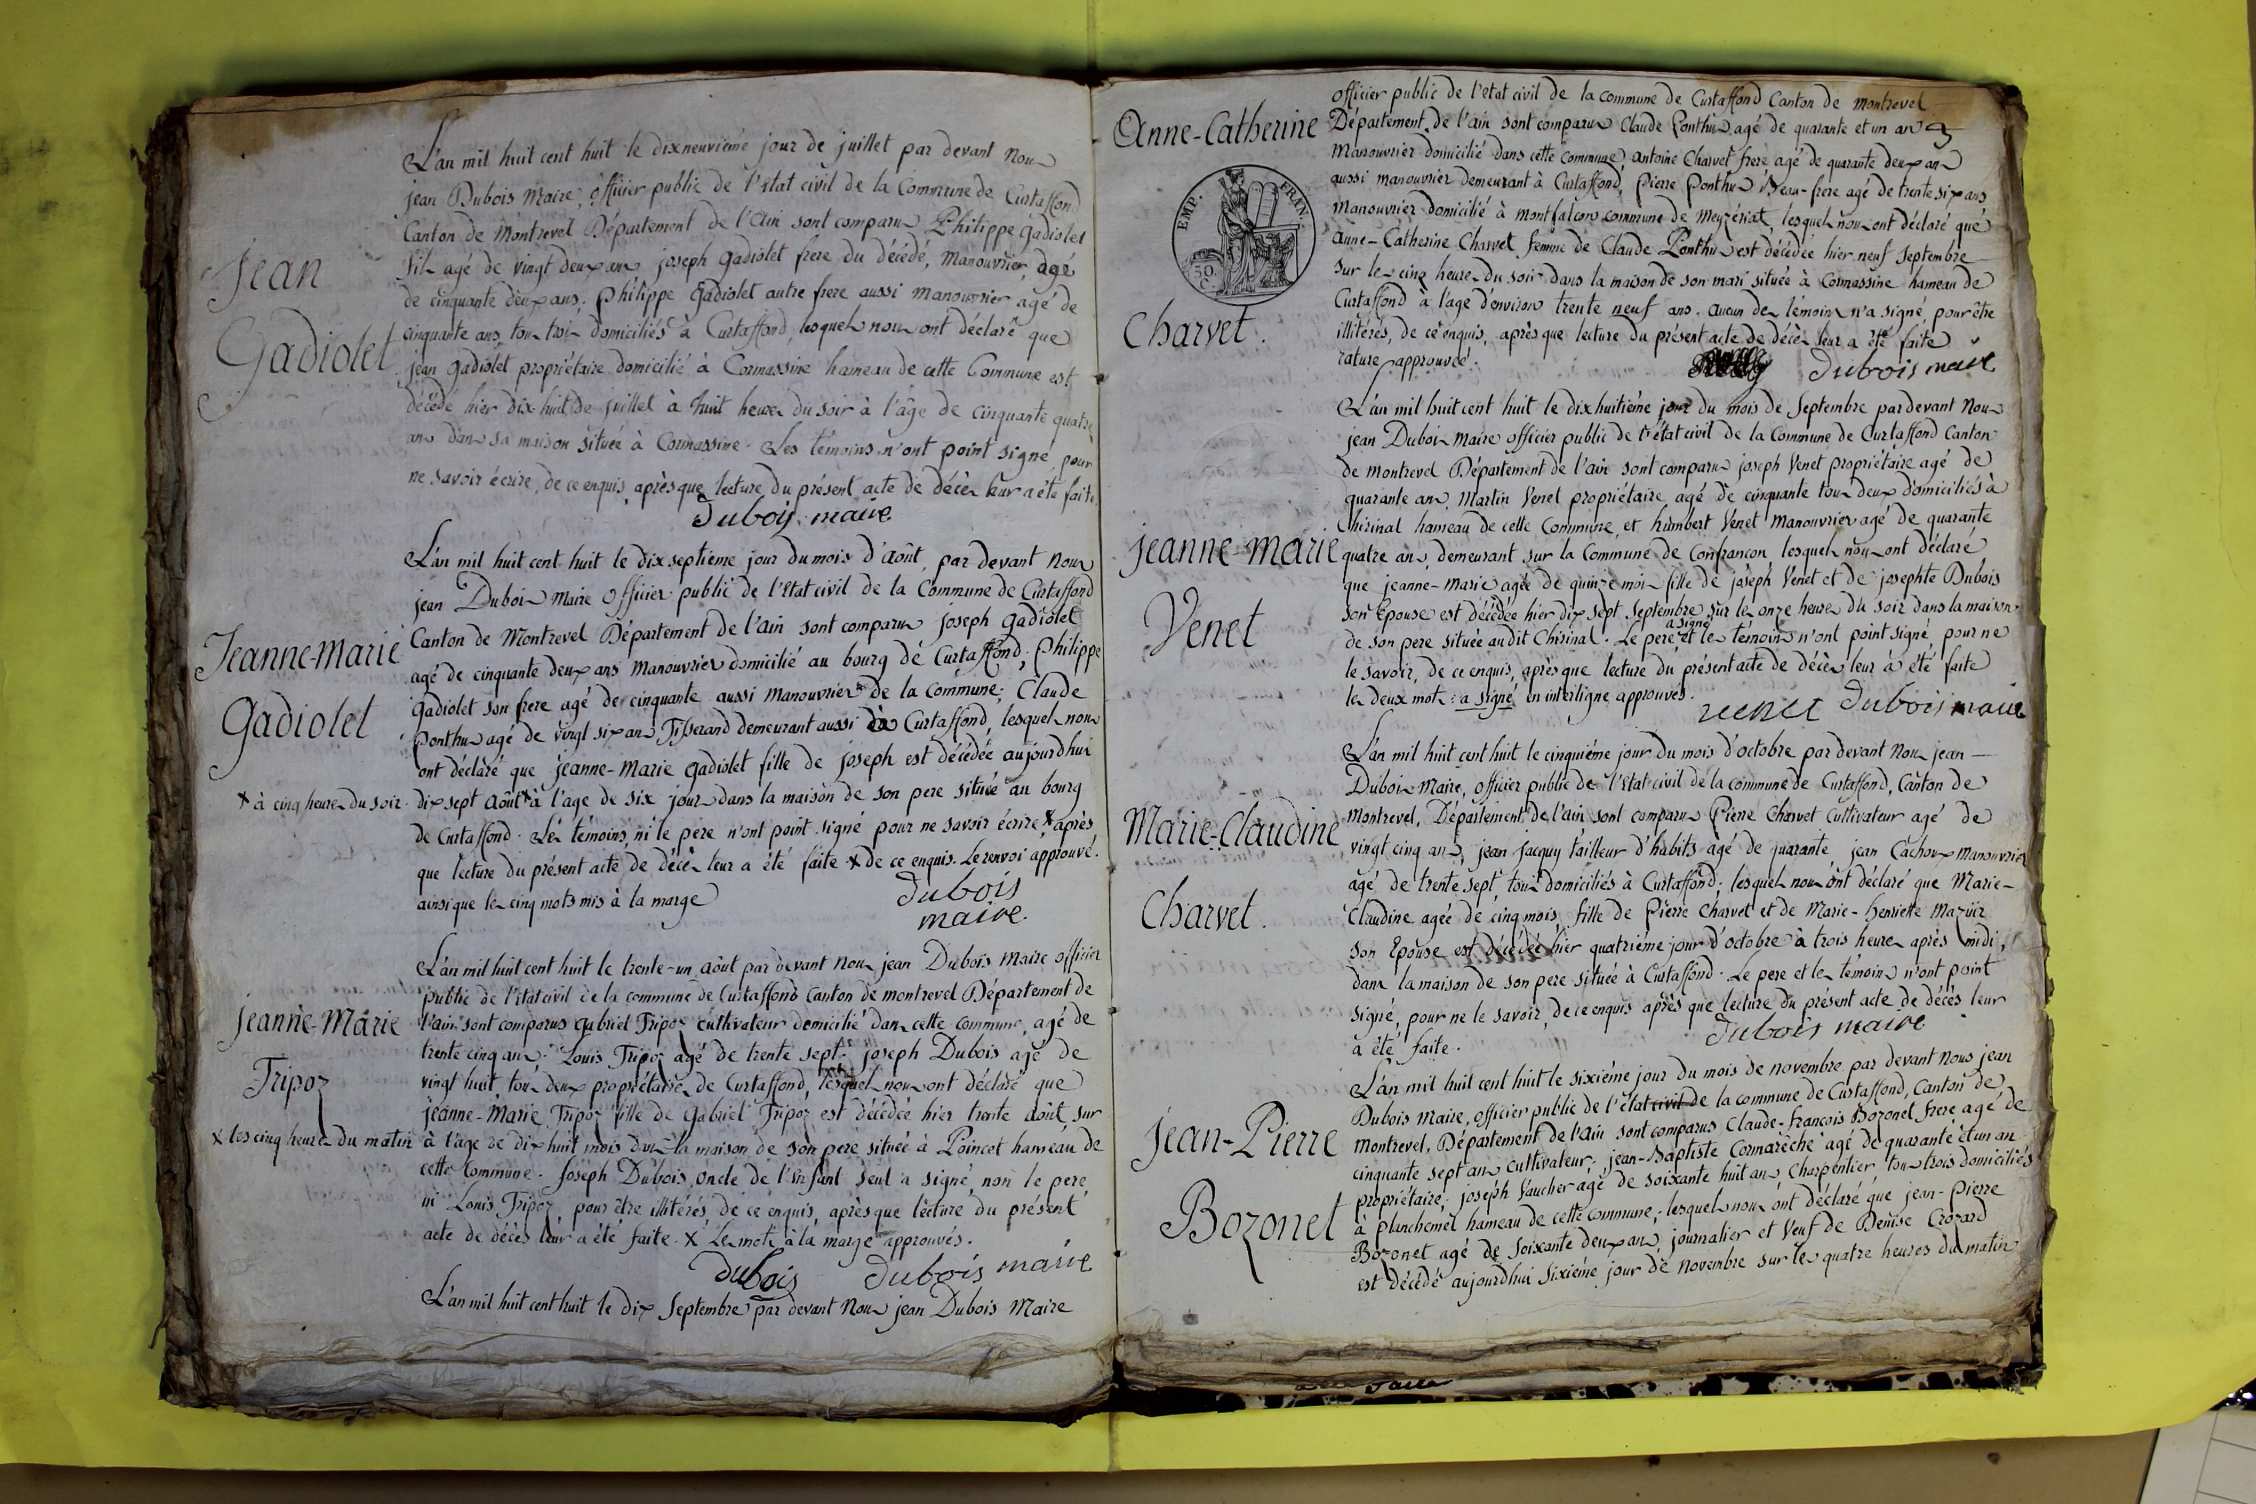 Jean
Gadiolet
L'an mil huit cent huit le dixneuvième jour de juillet par devant Nous
jean Dubois Maire, officier public de l'état civil de la Commune de Curtaffond
Canton de Montrevel Département de l'ain sont comparus Philippe gadiolet
fils agé de vingt deux ans joseph gadiolet frere du décédé, manouvrier, agé
de cinquante deux ans, Philippe Gadiolet autre frere aussi manouvrier agé de
cinquante ans, tous trois domiciliés à Curtaffond, lesquels nous ont déclaré que
jean gadiolet propriétaire domicilié à Cormassine hameau de cette Commune est
décédé hier dix huit de juillet à huit heures du soir à l'âge de cinquante quatre
ans dans sa maison située à Cormassine. Les témoins n'ont point signé pour
ne savoir écrire, de ce enquis, après que lecture du présent acte de décès leur a été faite
Dubois maire
Jeanne-Marie
Gadiolet
L'an mil huit cent huit le dix septieme jour du mois d'août, par devant nous
jean Dubois Maire officier public de l'état civil de la Commune de Curtaffond
Canton de Montrevel Département de l'ain sont comparus joseph gadiolet
agé de cinquante deux ans manouvrier domicilié au bourg de Curtaffond, Philippe
Gadiolet son frere agé de cinquante aussi manouvrier de la Commune, Claude
Ponthus agé de vingt six ans Tisserand demeurant aussi à Curtaffond, lesquels nous
ont déclaré que jeanne-Marie gadiolet fille de joseph est décédée aujourdhui
x à cinq heures du soir. dix sept août x à l'age de six jours dans la maison de son pere située au bourg
de Curtaffond. Les témoins, ni le père n'ont point signé pour ne savoir écrire x après
que lecture du présent acte de décès leur a été faite x de ce enquis. Le renvoi approuvé.
ainsi que les cinq mots mis à la marge
Dubois
maire.
jeanne-Marie
Tripoz
L'an mil huit cent huit le trente-un août par devant Nous jean Dubois Maire officier
public de l'état civil de la commune de Curtaffond Canton de montrevel Département de
l'ain sont comparus gabriel Tripoz cultivateur domicilié dans cette commune, agé de
trente cinq ans, Louis Tripoz agé de trente sept, joseph Dubois agé de
vingt huit tous deux propriétaires de Curtaffond, lesquels nous ont déclaré que
jeanne-Marie Tripoz fille de gabriel Tripoz est décédée hier trente août, sur
x les cinq heures du matin à l'age de dix huit mois dans la maison de son pere située à Poincet hameau de
cette Commune. Joseph Dubois, oncle de l'enfant seul a signé, non le pere
ni Louis Tripoz, pour être illitérés, de ce enquis, après que lecture du présent
acte de décès leur a été faite. x Les mots à la marge approuvés.
Dubois Dubois maire
L'an mil huit cent huit le dix Septembre par devant Nous jean Dubois Maire
3
Anne-Catherine
Charvet.
EMP. FRAN.
50. C.
officier public de l'état civil de la commune de Curtaffond Canton de montrevel
Département de l'ain sont comparus Claude Ponthus agé de quarante et un ans
manouvrier domicilié dans cette commune, antoine Charvet frere agé de quarante deux ans
aussi manouvrier demeurant à Curtaffond, Pierre Ponthus Beau-frere agé de trente six ans
manouvrier domicilié à montfalcon commune de Meyzériat, lesquels nous ont déclaré que
anne-Catherine Charvet femme de Claude Ponthus est décédée hier neuf Septembre
sur les cinq heures du soir dans la maison de son mari située à Cormassine hameau de
Curtaffond à l'age d'environ trente neuf ans. aucun des témoins n'a signé pour être
illitérés, de ce enquis, après que lecture du présent acte de décès leur a été faite
rature approuvée.
Dubois maire
jeanne-marie
Venet
L'an mil huit cent huit le dixhuitième jour du mois de Septembre par devant Nous
jean Dubois Maire officier public de l'état civil de la Commune de Curtaffond Canton
de montrevel Département de l'ain sont comparus joseph Venet propriétaire agé de
quarante ans, Martin Venet propriétaire agé de cinquante tous deux domiciliés à
Chirinal hameau de cette Commune, et humbert Venet manouvrier agé de quarante
quatre ans demeurant sur la Commune de Confrançon lesquels nous ont déclaré
que jeanne-Marie agée de quinze mois fille de joseph Venet et de josephte Dubois
son Epouse est décédée hier dix sept Septembre sur les onze heures du soir dans la maison
de son pere située audit Chirinal. Le pere a signé et les témoins n'ont point signé, pour ne
le savoir, de ce enquis, après que lecture du présent acte de décès leur à été faite
les deux mots: a signé en interligne approuvés.
venet Dubois maire
Marie-Claudine
Charvet.
L'an mil huit cent huit le cinquième jour du mois d'octobre par devant Nous jean
Dubois Maire, officier public de l'Etat civil de la commune de Curtaffond, Canton de
Montrevel, Département de l'ain sont comparus Pierre Charvet Cultivateur agé de
vingt cinq ans, jean jacquy tailleur d'habits agé de quarante, jean Cachoux manouvrier
agé de trente sept tous domiciliés à Curtaffond; lesquels nous ont déclaré que Marie-
Claudine agée de cinq mois, fille de Pierre Charvet et de Marie-henriette Mazuir
son Epouse est décédée hier quatrième jour d'octobre à trois heures après midi,
dans la maison de son pere située à Curtaffond. Le pere et les témoins n'ont point
signé, pour ne le savoir, de ce enquis après que lecture du présent acte de décès leur
a été faite.
Dubois maire
Jean-Pierre
Bozonet
L'an mil huit cent huit le sixième jour du mois de novembre par devant nous jean
Dubois maire, officier public de l'état civil de la commune de Curtaffond, Canton de
Montrevel, Département de l'ain sont comparus Claude-françois Bozonet frere agé de
cinquante sept ans cultivateur, jean-Baptiste Cormarèche agé de quarante et un an
propriétaire; joseph Vaucher agé de soixante huit ans, Charpentier tous trois domiciliés
à planchemel hameau de cette commune, lesquels nous ont déclaré que jean-Pierre
Bozonet agé de soixante deux ans, journalier et veuf de Denise Crozard
est décédé aujourdhui sixième jour de novembre sur les quatre heures du matin